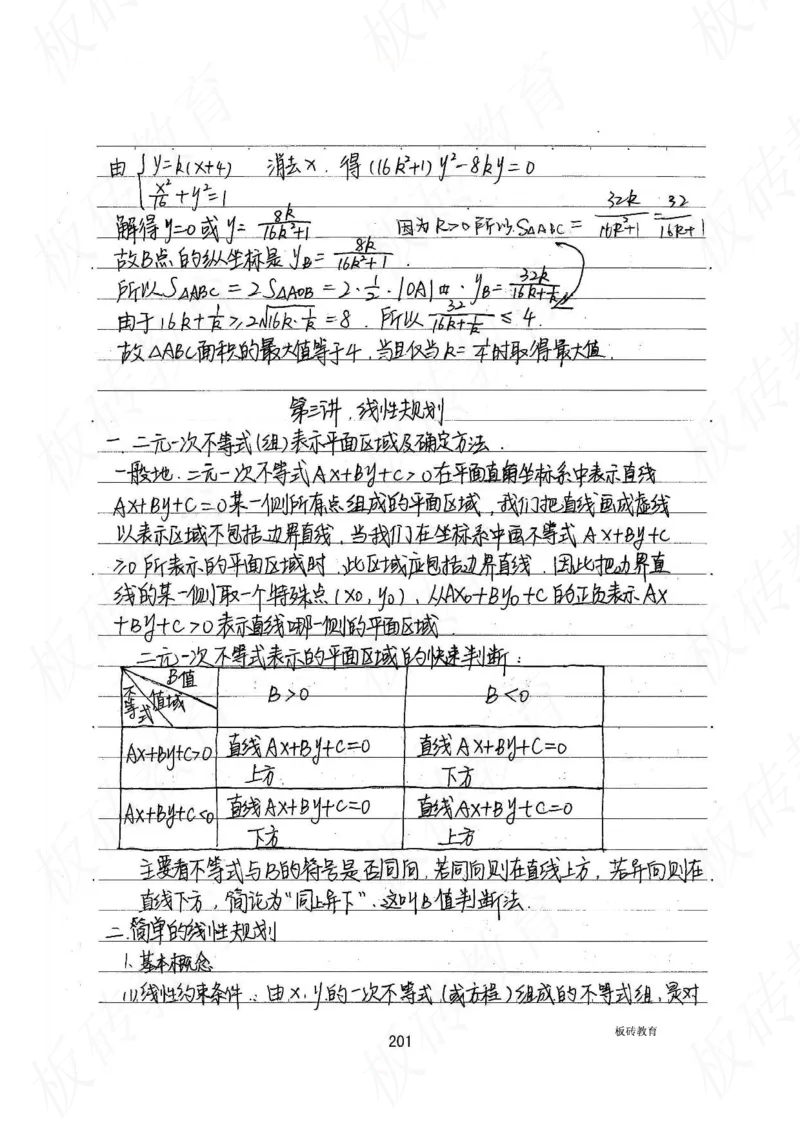 由 { y=k(x+4) 消去x. 得 (16k²+1) y²-8ky=0
x²/16 + y²=1
解得 y=0 或 y= 8k/(16k²+1) 因为 k>0 所以 S△ABC = 32k/(16k²+1) = 32/(16k+1
故B点的纵坐标是 yB = 8k/(16k²+1) .
所以 S△ABC = 2S△AOB = 2·1/2·|OA|·yB = 32k/
由于 16k+1/k ≥ 2√16k·1/k = 8 . 所以 32/(16k+1/k) ≤ 4 .
故 △ABC面积的最大值等于4, 当且仅当 k= 1/4时取得最大值.
第三讲. 线性规划
一. 二元一次不等式(组)表示平面区域及确定方法.
一般地. 二元一次不等式 Ax+By+C>0 在平面直角坐标系中表示直线
Ax+By+C=0某一侧所有点组成的平面区域, 我们把直线画成虚线
以表示区域不包括边界直线, 当我们在坐标系中画不等式 Ax+By+C
≥0 所表示的平面区域时, 此区域应包括边界直线. 因此把边界直
线的某一侧取一个特殊点 (x0, y0), 从Ax0+By0+C的正负表示 Ax
+By+C>0表示直线哪一侧的平面区域.
二元一次不等式表示的平面区域的快速判断:
B值
不等式 值域 B>0 B<0
Ax+By+C>0 直线 Ax+By+C=0 直线 Ax+By+C=0
上方. 下方
Ax+By+C<0 直线 Ax+By+C=0 直线 Ax+By+C=0
下方 上方
主要看不等式与B的符号是否同向, 若同向则在直线上方, 若异向则在
直线下方, 简论为“同上异下”. 这叫B值判断法.
二. 简单的线性规划
1. 基本概念
(1)线性约束条件: 由x, y的一次不等式(或方程)组成的不等式组, 是对
板砖教育
201